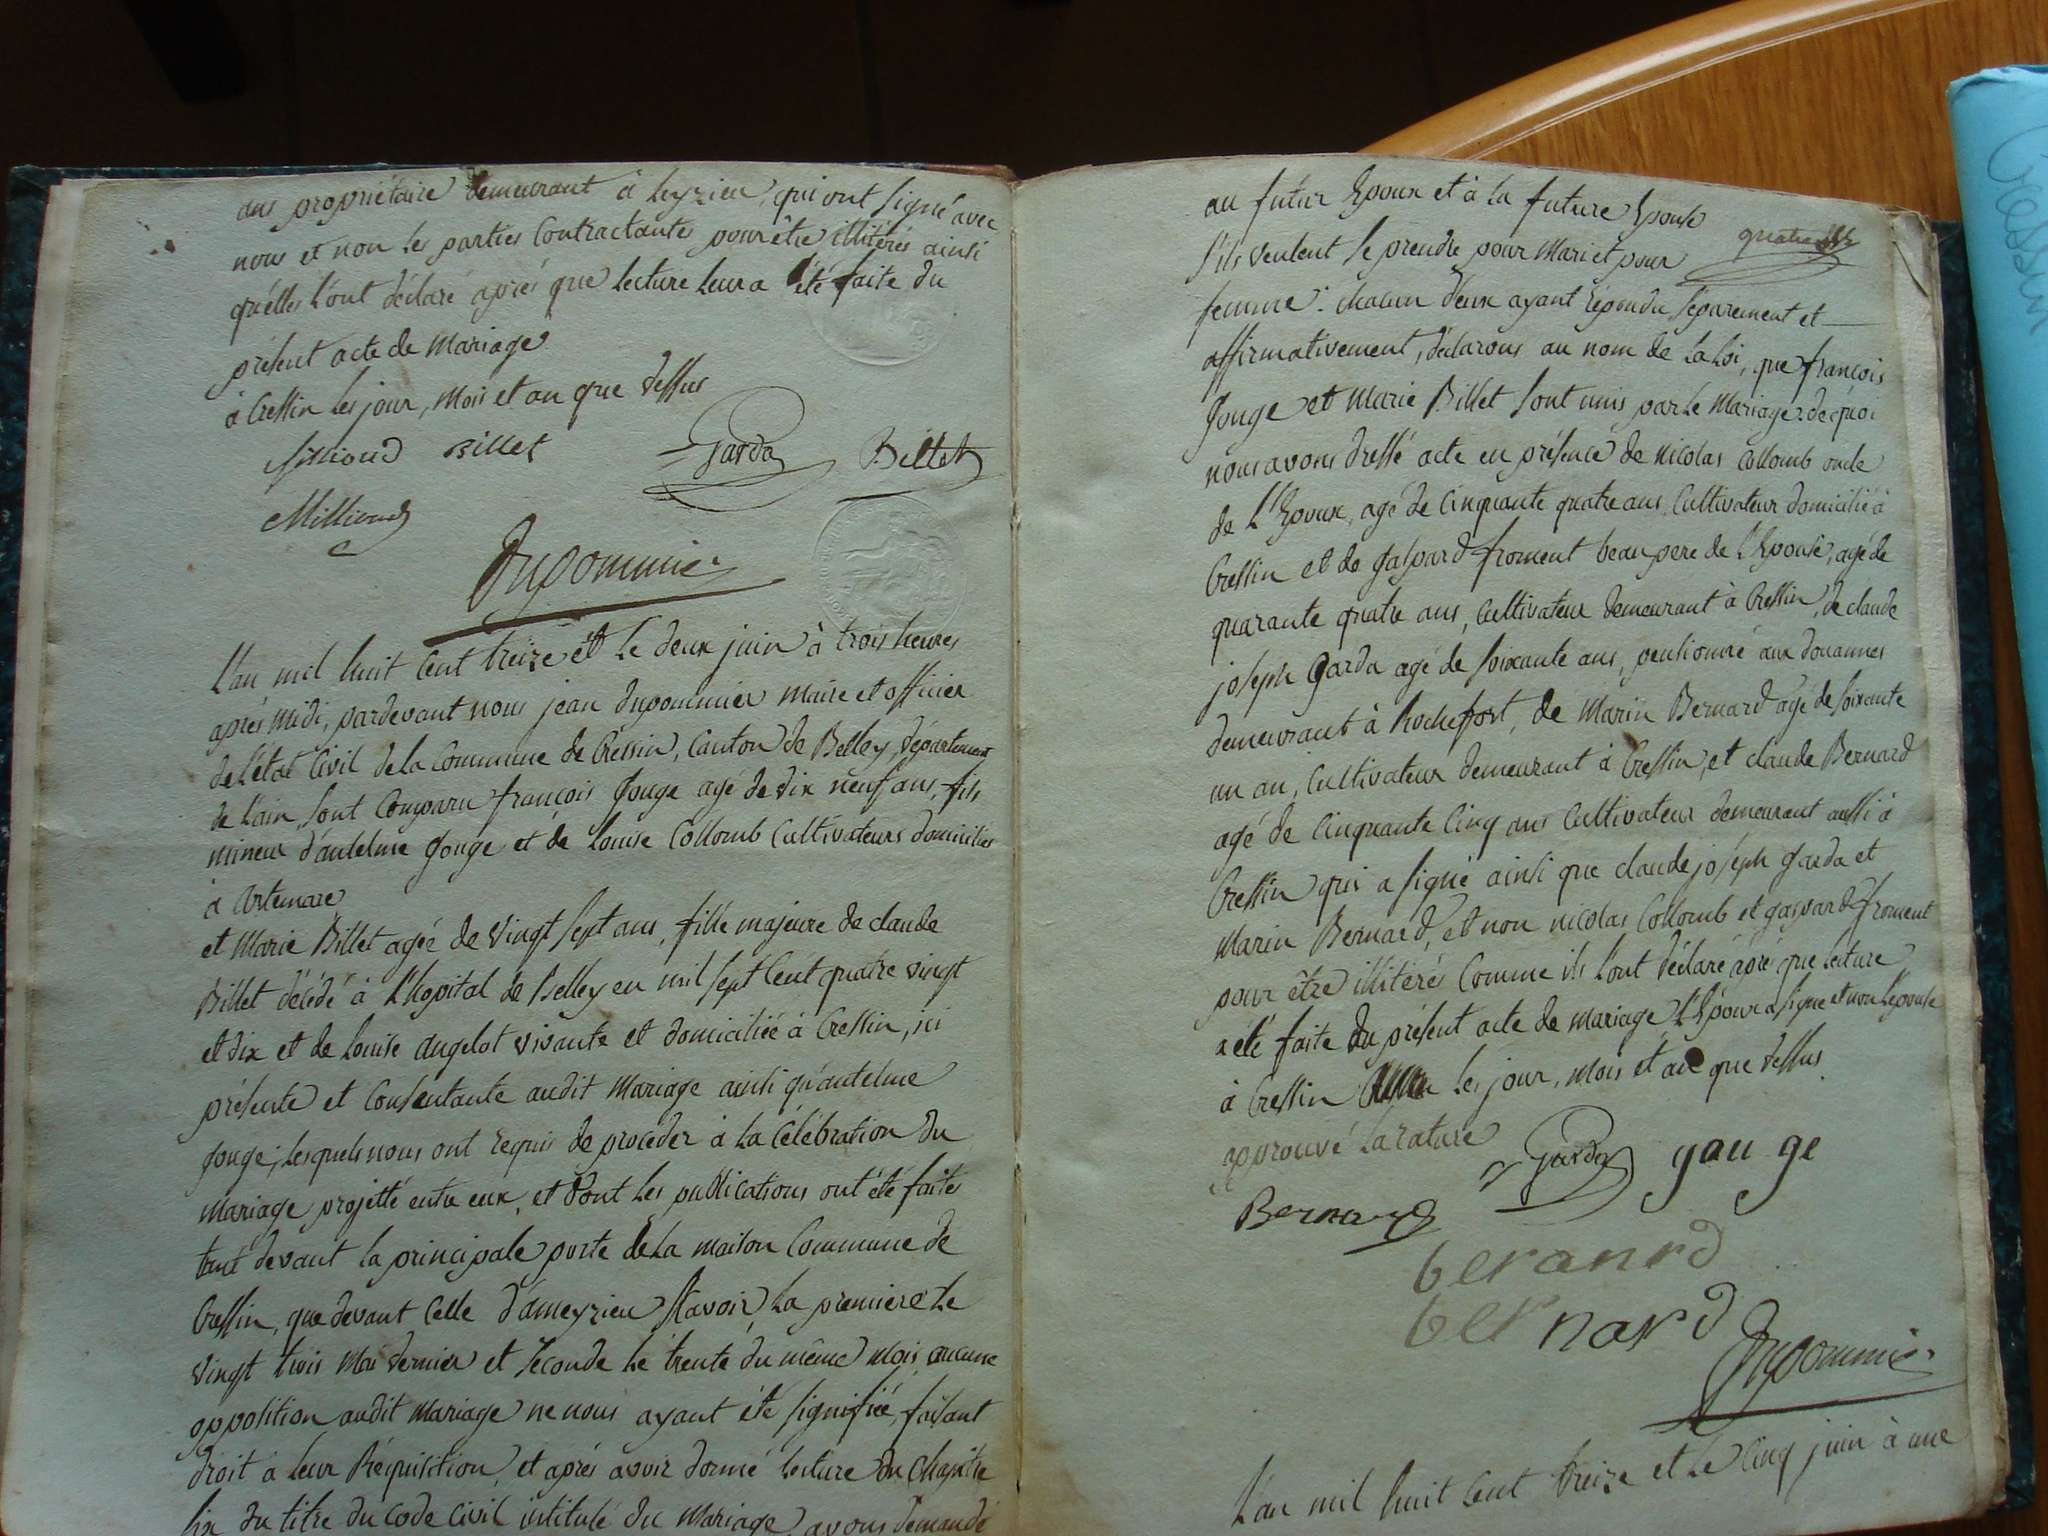 ans propriétaire demeurant à Leyzieu, qui ont signé avec
nous et non les parties Contractantes pour être illitérés ainsi
qu'elles l'ont déclaré après que lecture leur a été faite du
présent acte de Mariage
à Cressin les jour, Mois et an que dessus
Billet Garda Billet
Milliand
Dupommier
L'an mil huit Cent treize et le deux juin à trois heures
après Midi, pardevant nous jean dupommier maire et officier
de l'état Civil de la Commune de Cressin, Canton de Belley, département
de l'ain, sont Comparu françois Gouge agé de dix neuf ans, fils
mineur d'antelme Gouge et de Louise Collomb Cultivateurs domiciliés
à Artemare
et Marie Billet agée de vingt sept ans, fille majeure de claude
Billet décédé à l'hopital de Belley en mil sept Cent quatre vingt
et dix et de Louise angelot vivante et domiciliée à Cressin, ici
présente et Consentante audit Mariage ainsi qu'antelme
gouge; lesquels nous ont requis de proceder à la Célébration du
Mariage projetté entre eux, et dont les publications ont été faites
tant devant la principale porte de la maison Commune de
Cressin, que devant Celle d'ameyzieu Savoir, la premiere le
vingt trois Mai dernier et seconde le trente du même mois, aucune
opposition audit Mariage ne nous ayant été signifiée, faisant
droit à leur Réquisition, et après avoir donné lecture du Chapitre
six du titre du Code Civil intitulé du Mariage, avons demandé
au futur Epoux et à la future Epouse
s'ils veulent se prendre pour Mari et pour
femme. chacun d'eux ayant répondu séparement et
affirmativement, déclarons au nom de la Loi, que françois
Gouge et Marie Billet sont unis par le Mariage. de quoi
nous avons dressé acte en présence de Nicolas Collomb oncle
de L'Epoux, agé de Cinquante quatre ans, Cultivateur domicilié à
Cressin et de gaspard froment beau pere de l'Epouse, agé de
quarante quatre ans, Cultivateur demeurant à Cressin, de claude
joseph Garda agé de soixante ans, pensionné aux douannes
demeurant à Rochefort, de Marin Bernard agé de soixante
un an, Cultivateur demeurant à Cressin, et claude Bernard
agé de Cinquante Cinq ans Cultivateur demeurant aussi à
Cressin qui a signé ainsi que claude joseph garda et
Marin Bernard, et non nicolas Collomb et gaspard froment
pour être illitérés Comme ils l'ont déclaré après que lecture
a été faite du présent acte de mariage L'Epoux a signé et non Lepouse
à Cressin les jour, mois et an que dessus
approuvé la rature Garda gau ge
Bernard
beranrd
bernard
Dupommier
L'an mil huit Cent treize et le Cinq juin à une